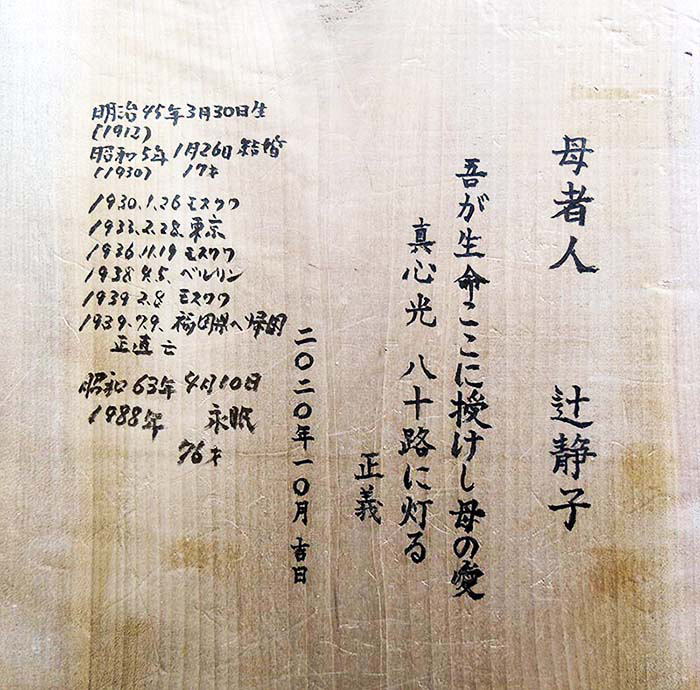 母者人 辻静子
吾が生命ここに授けし母の愛
真心光 八十路に灯る
正義
二〇二〇年一〇月 吉日
明治45年3月30日生
(1912)
昭和5年1月26日結婚
(1930) 17才
1930.1.26 モスクワ
1933.2.28.東京
1936.11.19 モスクワ
1938.9.5.ベルリン
1939 2.8 モスクワ
1939.7.9.福岡県へ帰国
正直亡
昭和63年4月10日
1988年 永眠
76才